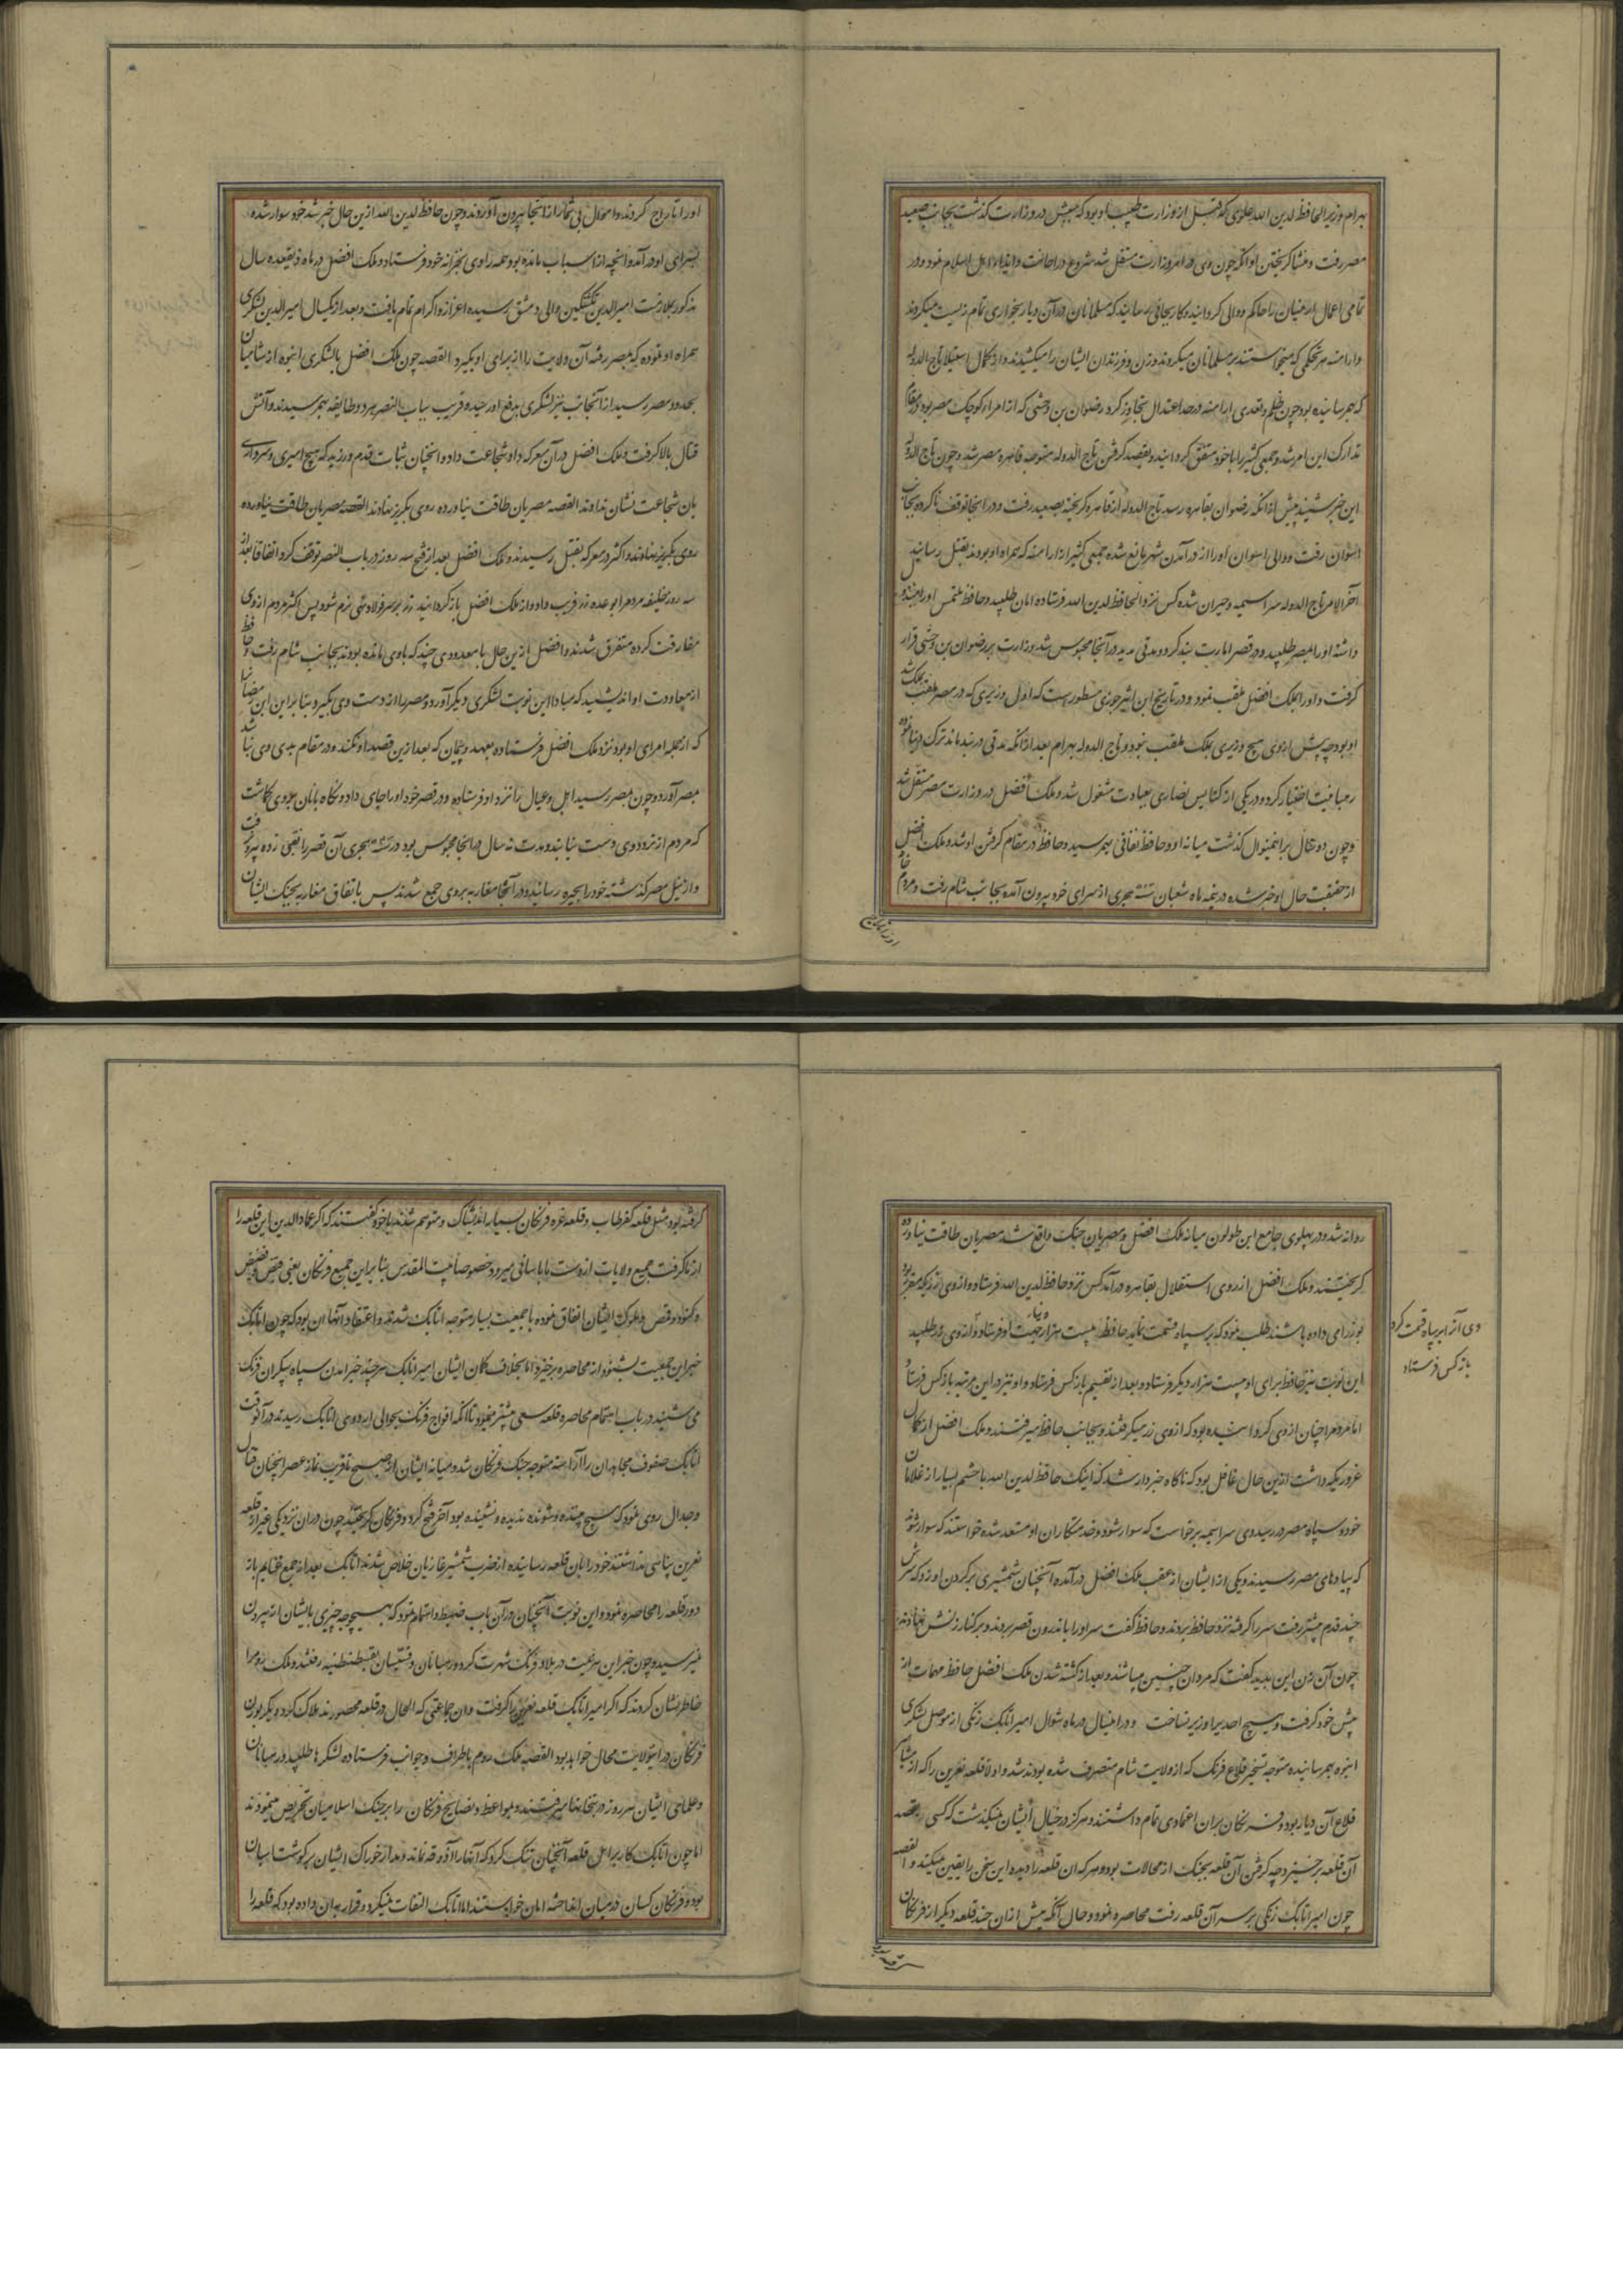 بهرام وزیر الحافظ لدین الله علوی که قبل از وزارت طبیب او بود که پیش در وزارت گذشت بجانب صعید
مصر رفت و منشا گریختن او انکه چون وی در امر وزارت مستقل شد شروع در اهانت و ایذاء اهل اسلام نمود و در
تمامی اعمال ارمنیان را حاکم و والی گردانید و کار بجائی رسانید که مسلمانان در آن دیار بخواری تمام زیست میکردند
و ارامنه هر تحکمی که میخواستند بر مسلمانان میکردند و زن و فرزندان ایشان را میکشیدند و از کمال استیلا تاج الدوله
که بهم رسانیده بود چون ظلم و تعدی ارامنه از حد اعتدال تجاوز کرد رضوان بن وخشی که از امراء کوچک مصر بود در مقام
تدارک این امر شد و جمعی کثیر را با خود متفق گردانید و بقصد گرفتن تاج الدوله متوجه قاهره مصر شد و چون تاج الدوله
این خبر شنید پیش از انکه رضوان بقاهره رسد تاج الدوله از قاهره گریخته بصعید رفت و در انجا توقف ناکرده بجانب
اسوان رفت و والی اسوان او را از در آمدن شهر مانع شده جمعی کثیر از ارامنه که همراه او بودند بقتل رسانید
آخر الامر تاج الدوله سراسیمه و حیران شده کس نزد الحافظ لدین الله فرستاده امان طلبید و حافظ ملتمس او را مبذول
داشته او را بمصر طلبید و در قصر امارت بند کرد و مدتی مدید در آنجا محبوس شد و وزارت بر رضوان بن وخشی قرار
گرفت و او را بملک افضل ملقب نمود و در تاریخ ابن اثیر جزری مسطور است که اول وزیری که در مصر ملقب بملک شد
او بود چه پیش از وی هیچ وزیری بملک ملقب نبود و تاج الدوله بهرام بعد از انکه مدتی در بند ماند ترک دنیا نموده
رهبانیت اختیار کرد و در یکی از کنایس نصاری بعبادت مشغول شد و ملک افضل در وزارت مصر مستقل شد
و چون ده سال بر اینمنوال گذشت میانه او و حافظ نفاقی بهم رسید و حافظ در مقام گرفتن او شد و ملک افضل
از حقیقت حال او خبر شده در نیمه ماه شعبان سنه هجری از سرای خود بیرون آمده بجانب شام رفت و مردم خانه
او را تاراج
او را تاراج کردند و اموال بی شمار از انجا بیرون آوردند و چون حافظ لدین الله ازین حال خبر شد خود سوار شده
بسرای او در آمد و انچه از اسباب مانده بود همه را وی بخزانه خود فرستاد و ملک افضل در ماه ذیقعده سال
مذکور بملازمت امیر الدین کمشتکین والی دمشق رسیده اعزاز و اکرام تمام یافت و بعد از یکسال امیر الدین لشکری
همراه او نموده که بمصر رفته آن ولایت را از برای او بگیرد القصه چون ملک افضل بالشکری انبوه از شامیان
بحدود مصر رسید از آنجانب نیز لشکری بدفع او رسیده و قریب بباب النصر هر دو طایفه بهم رسیدند و آتش
قتال بالا گرفت و ملک افضل در آن معرکه داد شجاعت داد و انچنان ثبات قدم ورزید که هیچ امیری و سرداری
بان شجاعت نشان نداوند القصه مصریان طاقت نیاورده روی بگریز نهادند القصه مصریان طاقت نیاورده
روی بگریز نهادند و اکثر در معرکه بقتل رسیدند و ملک افضل بعد از فتح سه روز در باب النصر توقف کرد اتفاقا بعد از
سه روز خلیفه مردم را بوعده زر فریب داد و از ملک افضل باز گردانید زر بر سر فولاد نهی نرم شود پس اکثر مردم از وی
مفارقت کرده متفرق شدند و افضل ازین حال با معدودی چند که با وی مانده بودند بجانب شام رفت و حافظ
از معاودت او اندیشید که مبادا این نوبت لشکری دیگر آورد و مصر را از دست وی بگیرد بنا بر این ابن مضانیا
که از جمله امرای او بود نزد ملک افضل فرستاده بعهد و پیمان که بعد ازین قصد او نکند و در مقام بدی وی نباشد
بمصر آورد و چون بمصر رسید اهل و عیال را نزد او فرستاده و در قصر خود او را جای داد و نگاه بانان بر وی گماشت
که مردم از تردد وی دست نیابند و مدت نه سال در انجا محبوس بود در سنه هجری آن قصر را نقبی زده بیرون رفت
و از نیل مصر گذشته خود را بجیزه رسانید و در آنجا مغاربه بر وی جمع شدند پس باتفاق مغاربه بجنگ ایشان
روانه شد و در پهلوی جامع ابن طولون میانه ملک افضل و مصریان جنگ واقع شد مصریان طاقت نیاورده
گریختند و ملک افضل از روی استقلال بقاهره در آمد کس نزد حافظ لدین الله فرستاد و از وی زری که مقرر بود
بوزرای داده باشند طلب نمود که بر سپاه قسمت نماید حافظ بیست هزار دینار جهت او فرستاد و از وی زر طلبید
وی آنرا بر سپاه قسمت کرد
باز کس فرستاد
این نوبت نیز حافظ برای او بیست هزار دیگر فرستاد و بعد از تقسیم باز کس فرستاد و او نیز در این مرتبه باز کس فرستاد
اما مردم را چنان از وی گردانیده بود که از وی زر میگرفتند و بجانب حافظ میرفتند و ملک افضل از کمال
غروریکه داشت ازین حال غافل بود که ناگاه خبردار شد که اینک حافظ لدین الله با خشم بسیار از غلامان
خود و سپاه مصر در رسید وی سراسیمه برخواست که سوار شود و خدمتکاران او مستعد شده خواستند که سوار شود
که پیادهای مصر رسیدند و یکی از ایشان از عقب ملک افضل در آمده آنچنان شمشیری بر گردن او زد که سرش
چند قدم پیشتر رفت سر را گرفته نزد حافظ بردند و حافظ گفت سر او را باندرون قصر بردند و بر کنار زنش نهادند
چون آن زن این بدید گفت که مردان چنین میباشند و بعد از کشته شدن ملک افضل حافظ مهمات را از
پیش خود گرفت و هیچ احدیرا وزیر نساخت و در اینسال در ماه شوال امیر اتابک زنگی از موصل لشکری
انبوه بهم رسانیده متوجه تسخیر قلاع فرنگ که از ولایت شام متصرف شده بودند شد و اولا قلعه بعرین را که از مشاهیر
قلاع آن دیار بود و فرنگان بران اعتمادی تمام داشتند و هرگز در خیال ایشان نمیگذشت که کسی بقصد
آن قلعه برخیزد چه گرفتن آن قلعه بجنگ از محالات بود و هر که ان قلعه را دیده این سخن را یقین میکند و القصه
چون امیر اتابک زنگی بر سر آن قلعه رفت محاصره نمود و حال آنکه پیش از ان چند قلعه دیگر از فرنگان
گرفته بود مثل قلعه کفرطاب و قلعه معره فرنگان بسیار اندیشناک و متوهم شدند با خود گفتند که اگر عماد الدین این قلعه را
از ما گرفت جمیع ولایات از دست ما باسانی میرود خصوصا بیت المقدس بنا براین جمیع فرنگان یعنی قسیس
و ملوک ایشان اتفاق نموده با جمعیت بسیار متوجه اتابک شدند و اعتقاد آنها ان بود که چون اتابک
خبر این جمعیت بشنود از محاصره برخیزد اما بخلاف گمان ایشان امیر اتابک هر چند خبر امدن سپاه بیکران فرنگ
می شنید در باب اهتمام محاصره قلعه سعی بیشتر مینمود تا انکه افواج فرنگ بحوالی اردوی اتابک رسیدند در آنوقت
اتابک صفوف مجاهدان را آراسته متوجه جنگ فرنگان شد و میانه ایشان از صبح تا قریب نماز عصر انچنان قتال
و جدال روی نمود که هیچ بیننده و شنونده ندیده و نشنیده بود آخر فتح کرد و فرنگان گریختند چون در ان نزدیکی غیر از قلعه
بعرین پناهی نداشتند خود را بان قلعه رسانیده از ضرب شمشیر غازیان خلاص شدند اتابک بعد از جمع غنایم باز
دور قلعه را محاصره نمود و این نوبت آنچنان در آن باب ضبط و اهتمام نمود که هیچوجه چیزی بایشان از بیرون
نمیرسید و چون خبر این هزیمت در بلاد فرنگ شهرت کرد و رهبانان و قسیسان بقسطنطنیه رفتند و ملک روم را
خاطر نشان کردند که اگر امیر اتابک قلعه بعرین را گرفت و ان جماعتی که الحال در قلعه محصورند هلاک کرد دیگر بودن
فرنگان در اینولایت محال خواهد بود القصه ملک روم باطراف و جوانب فرستاده لشکرها طلبید و رهبانان
و علمای ایشان هر روز در بتخانها میرفتند و بمواعظ و نصایح فرنگان را بر جنگ اسلامیان تحریص مینمودند
اما چون اتابک کار بر اهل قلعه آنچنان تنگ کرد که آنها را آذوقه نماند و مدار خوراک ایشان بر گوشت اسپان
بود و فرنگان کسان در میان انداخته امان خواستند اما اتابک التفات نمیکرد و قرار بدان داده بود که قلعه را